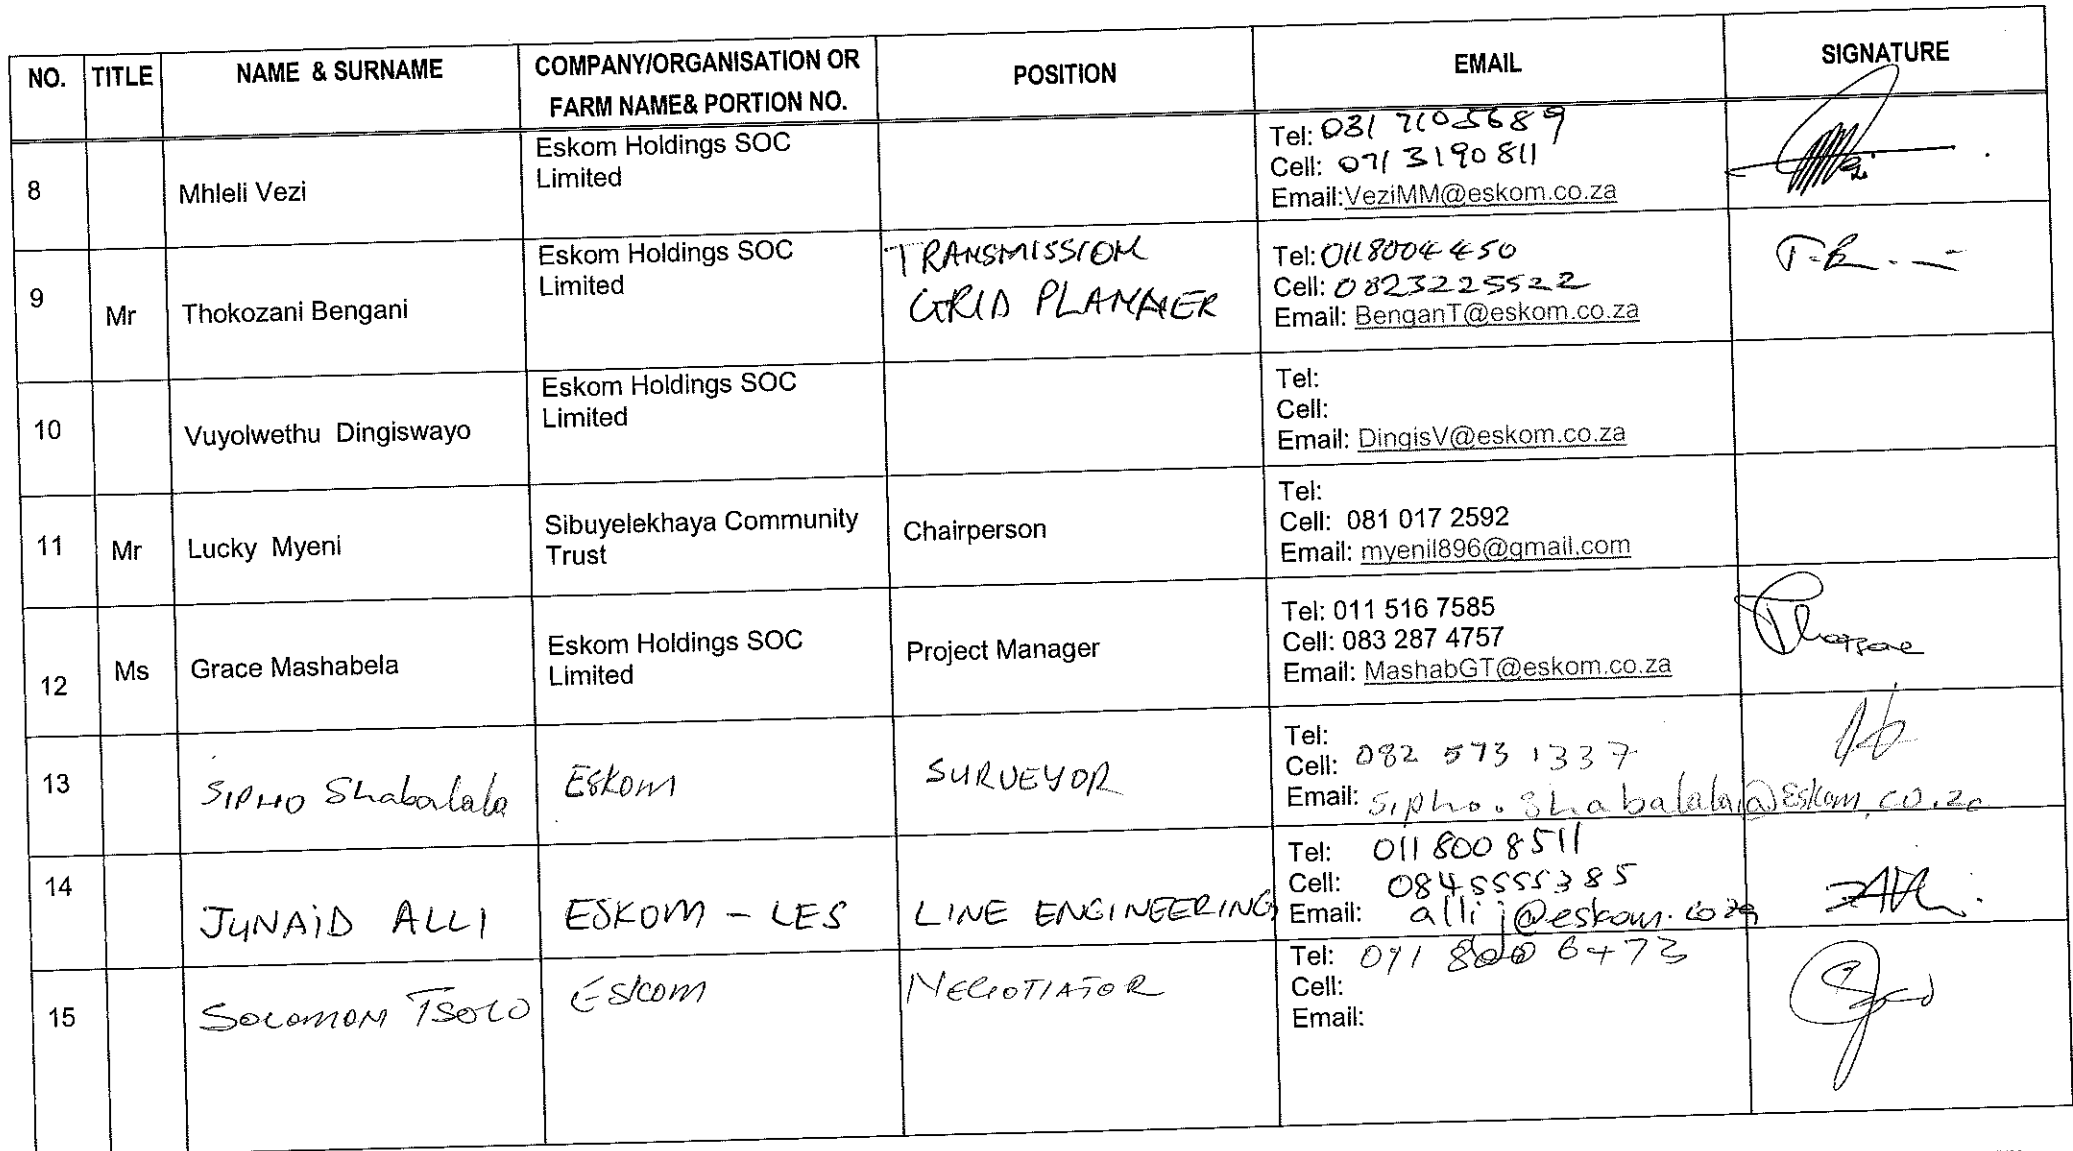 NO. TITLE NAME & SURNAME COMPANY/ORGANISATION OR FARM NAME& PORTION NO. POSITION EMAIL SIGNATURE
8
Mhleli Vezi
Eskom Holdings SOC
Limited
Tel: 031 7105689
Cell: 071 3190811
Email:VeziMM@eskom.co.za
9
Mr
Thokozani Bengani
Eskom Holdings SOC
Limited
TRANSMISSION
GRID PLANNER
Tel: 0118004450
Cell: 0823225522
Email: BenganT@eskom.co.za
10
Vuyolwethu Dingiswayo
Eskom Holdings SOC
Limited
Tel:
Cell:
Email: DingisV@eskom.co.za
11
Mr
Lucky Myeni
Sibuyelekhaya Community
Trust
Chairperson
Tel:
Cell: 081 017 2592
Email: myenil896@gmail.com
12
Ms
Grace Mashabela
Eskom Holdings SOC
Limited
Project Manager
Tel: 011 516 7585
Cell: 083 287 4757
Email: MashabGT@eskom.co.za
13
SIPHO Shabalala
Eskom
SURVEYOR
Tel:
Cell: 082 573 1337
Email: sipho.shabalala@Eskom.co.za
14
JUNAID ALLI
ESKOM - LES
LINE ENGINEERING
Tel: 011 800 8511
Cell: 0845555385
Email: allij@eskom.co.za
15
SOLOMON TSOLO
ESKOM
NEGOTIATOR
Tel:
Cell:
Email: